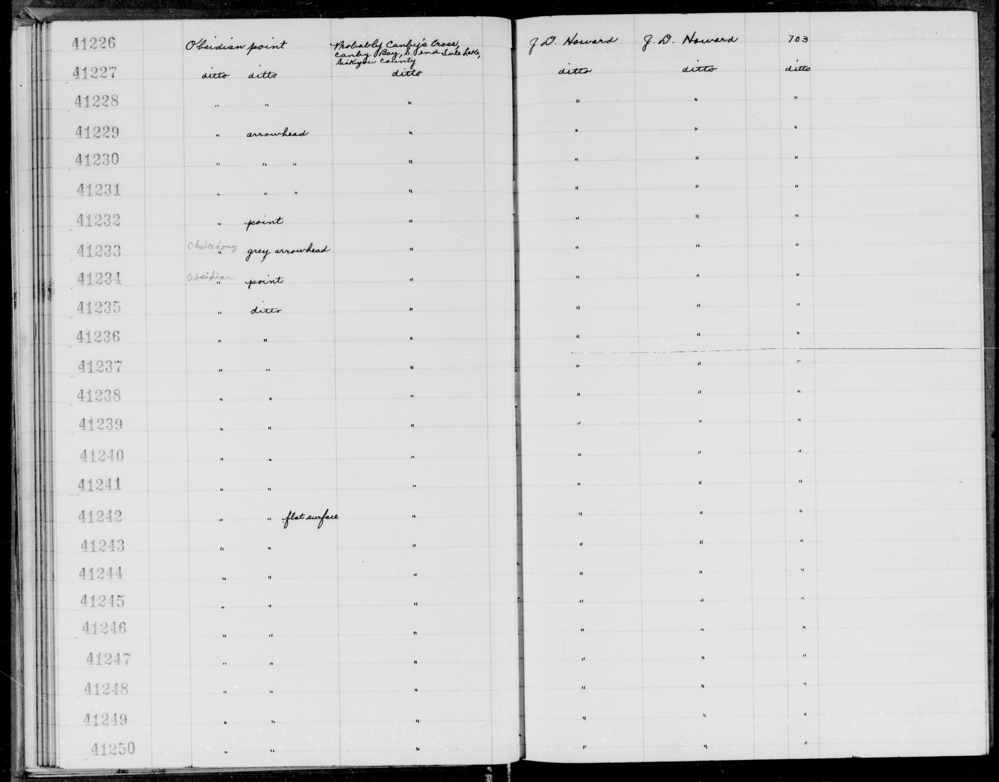 41226 Obsidian point Probably Canby's Cross, J.D. Howard J.D. Howard 703
Canby Bay, S. end Tule Lake,
Siskiyou County
41227 ditto ditto ditto ditto ditto ditto
41228 " " " " " "
41229 " arrowhead " " " "
41230 " " " " " " "
41231 " " " " " " "
41232 " point " " " "
41233 Chalcedony " grey arrowhead " " " "
41234 Obsidian " point " " " "
41235 " ditto " " " "
41236 " " " " " "
41237 " " " " " "
41238 " " " " " "
41239 " " " " " "
41240 " " " " " "
41241 " " " " " "
41242 " " flat surface " " " "
41243 " " " " " "
41244 " " " " " "
41245 " " " " " "
41246 " " " " " "
41247 " " " " " "
41248 " " " " " "
41249 " " " " " "
41250 " " " " " "